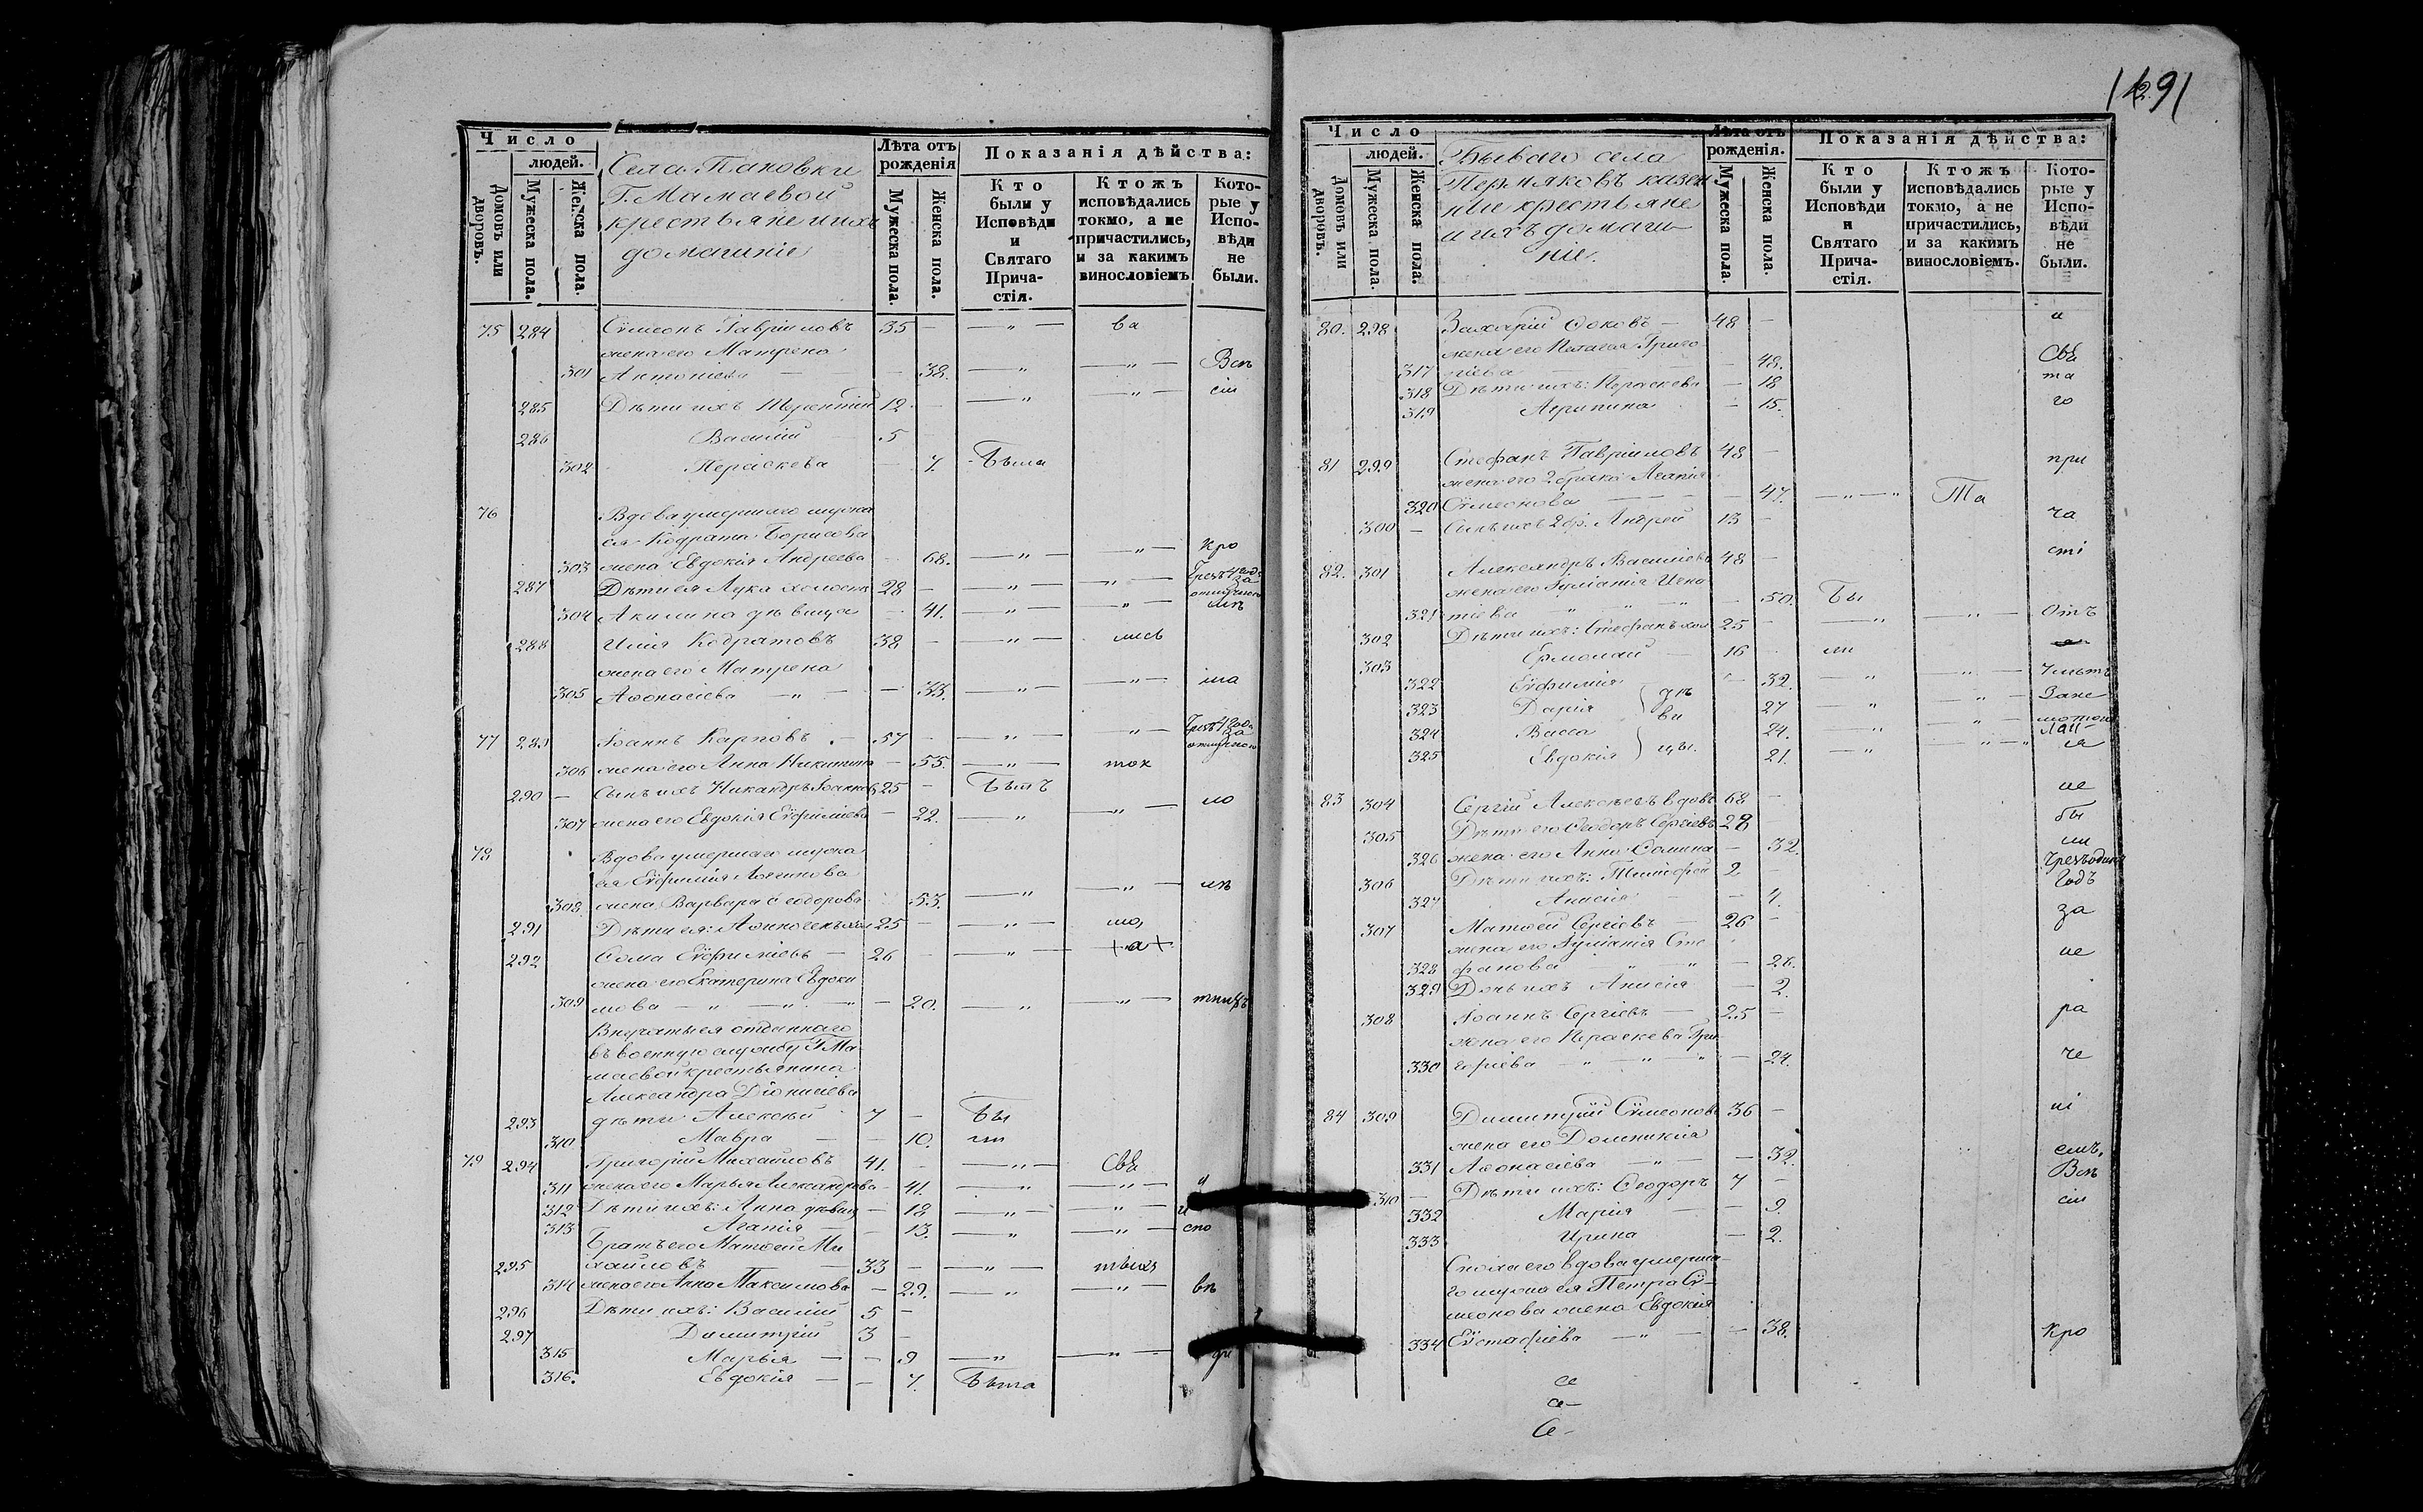 1291
Число
людей.
Домовъ или дворовъ.
Мужеска пола.
Женска пола.
Села Пановки
Г. Мамаевой
крестьяне и ихъ
домашніе
Лѣта отъ рожденія
Мужеска пола.
Женска пола.
Показанія дѣйства:
Кто были у Исповѣди и Святаго Прича-стія.
Ктожъ исповѣдались токмо, а не причастились, и за какимъ винословіемъ
Кото-рые у Испо-вѣди не были.
75 284 Сѵмеонъ Гавріиловъ 35 — — „ — ва
жена его Матрена
301 Антоніева — — 38. — „ — — „ — Всѣ
285 Дѣти ихъ Терентій 12 — — „ — — „ — си
286 Василій — 5 —
302 Параскева — 7. Была
76 Вдова умершаго мужа
ея Кодрата Борисова
303 жена Евдокія Андреева — 68. — „ — — „ — Кро
287 Дѣти ея Лука холостъ 28 — — „ — — „ —
304 Акилина дѣвица — 41. — „ — — „ —
288 Илія Кодратовъ 38 — — „ — лись
жена его Матрена
305 Аѳонасіева — „ — — 33. — „ — — „ — ма
77 289 Іоаннъ Карповъ — 57 — — „ — — „ —
306 жена его Анна Никитина — 55. — „ — ток
290 — Сынъ ихъ Никандръ Іоанновъ 25 — Бытъ
307 жена его Евдокія Еѵфиміева — 22. — „ — — „ — ло
78 Вдова умершаго мужа
ея Еѵфимія Логинова
308 жена Варвара Ѳеодорова 53. — „ — — „ —
291 Дѣти ея: хол 25 — — „ — мо,
292 Ѳома Еѵфиміевъ — 26 — — „ — +а+
жена его Екатерина Евдоки
309 мова — „ — „ — — 20. — „ — — „ —
Внучаты ея отданнаго
въ военную службу Г. Ма
маевой крестьянина
Александра Діонисіева
293 дѣти Алексѣй 7 — Бы
310 Мавра — — 10. ли
79 294 Григорій Михайловъ 41. — — „ — Свѣ
311 жена его Марья Александрова — 41. — „ — — „ — и
312 Дѣти ихъ: Анна дѣвица — 18 — „ — — „ —
313 Агапія — — 13. — „ — — „ — спо
Братъ его Матѳей Ми
295 хайловъ — 33 — — „ —
314 жена его Анна Максимова — 29. — „ — — „ — вѣ
296 Дѣти ихъ: Василій 5 —
297 Димитрій 3 —
315 Марья — — 9 — „ — — „ — ди
316. Евдокія — — 7. Была
Число
людей.
Домовъ или дворовъ.
Мужеска пола.
Женска пола.
Бываго села
Пермяковъ казен
ные крестьяне
и ихъ домаш
ніе.
Лѣта отъ рожденія.
Мужеска пола.
Женска пола.
Показанія дѣйства:
Кто были у Исповѣди и Святаго Прича-стія.
Ктожъ исповѣдались токмо, а не причастились, и за какимъ винословіемъ.
Кото-рые у Испо-вѣди не были.
80. 298 Захарій Ѳоковъ — 48 — и
жена его Пелагея Григо
317 ріева — 48. Свѣ
318 Дѣти ихъ: Параскева — 18 та
319 Агрипина — 15. го
81 299 Стефанъ Гавріиловъ 48 — при
жена его 2 брака Агапія
320 Сѵмеонова — — — 47. — „ — „ Та
300 — Сынъ ихъ 2 бр. Андрей 13 — ча
82. 301 Александръ Василіевъ 48 — сті
жена его Іуліанія Игна
321 тіева „ „ „ — 50. Бы
302 Дѣти ихъ: Стефанъ хол 25 — — „ — — „ — Отъ
303 Ермолай — 16 — ли
322 Еѵфимія 32. — „ — „ —
323 Дарія дѣ 27 — „ — „ —
324 Васса ви 24. — „ — „ —
325 Евдокія цы. 21. — „ — — „ — „
83 304 Сергій Алексѣевъ вдовъ 68 — не
305 Дѣти его Ѳеодоръ Сергіевъ 28 бы
326 жена его Анна Ѳомина — 32. ли
306 Дѣти ихъ: Тимоѳей 2 — Чрезъ одинъ
327 Анисія — — 4. Годъ
307 Матѳей Сергіевъ — 26 — за
жена его Іуліанія Сте
328 фанова „ „ — 26. не
329 Дочь ихъ Анисія — 2.
308 Іоаннъ Сергіевъ — 25 — ра
жена его Параскева Гри
330 горіева — „ — „ — 24. че
84 309 Димитрій Сѵмеоновъ 36 — ні
жена его Домникія
331 Аѳонасіева — „ — — 32. емъ,
310 — Дѣти ихъ: Ѳеодоръ 7 — Всѣ
332 Марія — — 9. си
333 Ирина — 2.
Сноха его вдова умерша
го мужа ея Петра Сѵ
меонова жена Евдокія
334 Еѵстафіева — „ — — 38. Кро